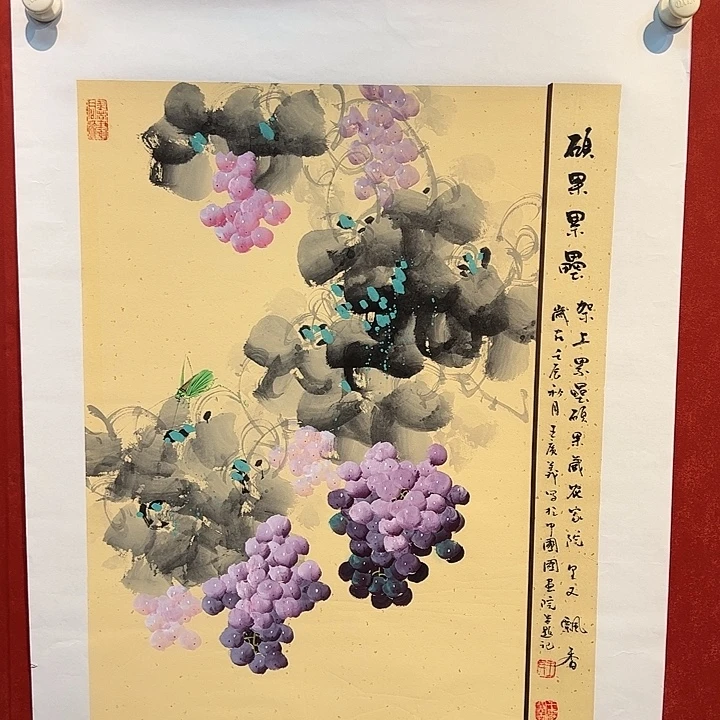 硕果累壘
架上累壘硕果藏农家院里又飘香
岁在壬辰秋月王庆义写于中國國画院并题记